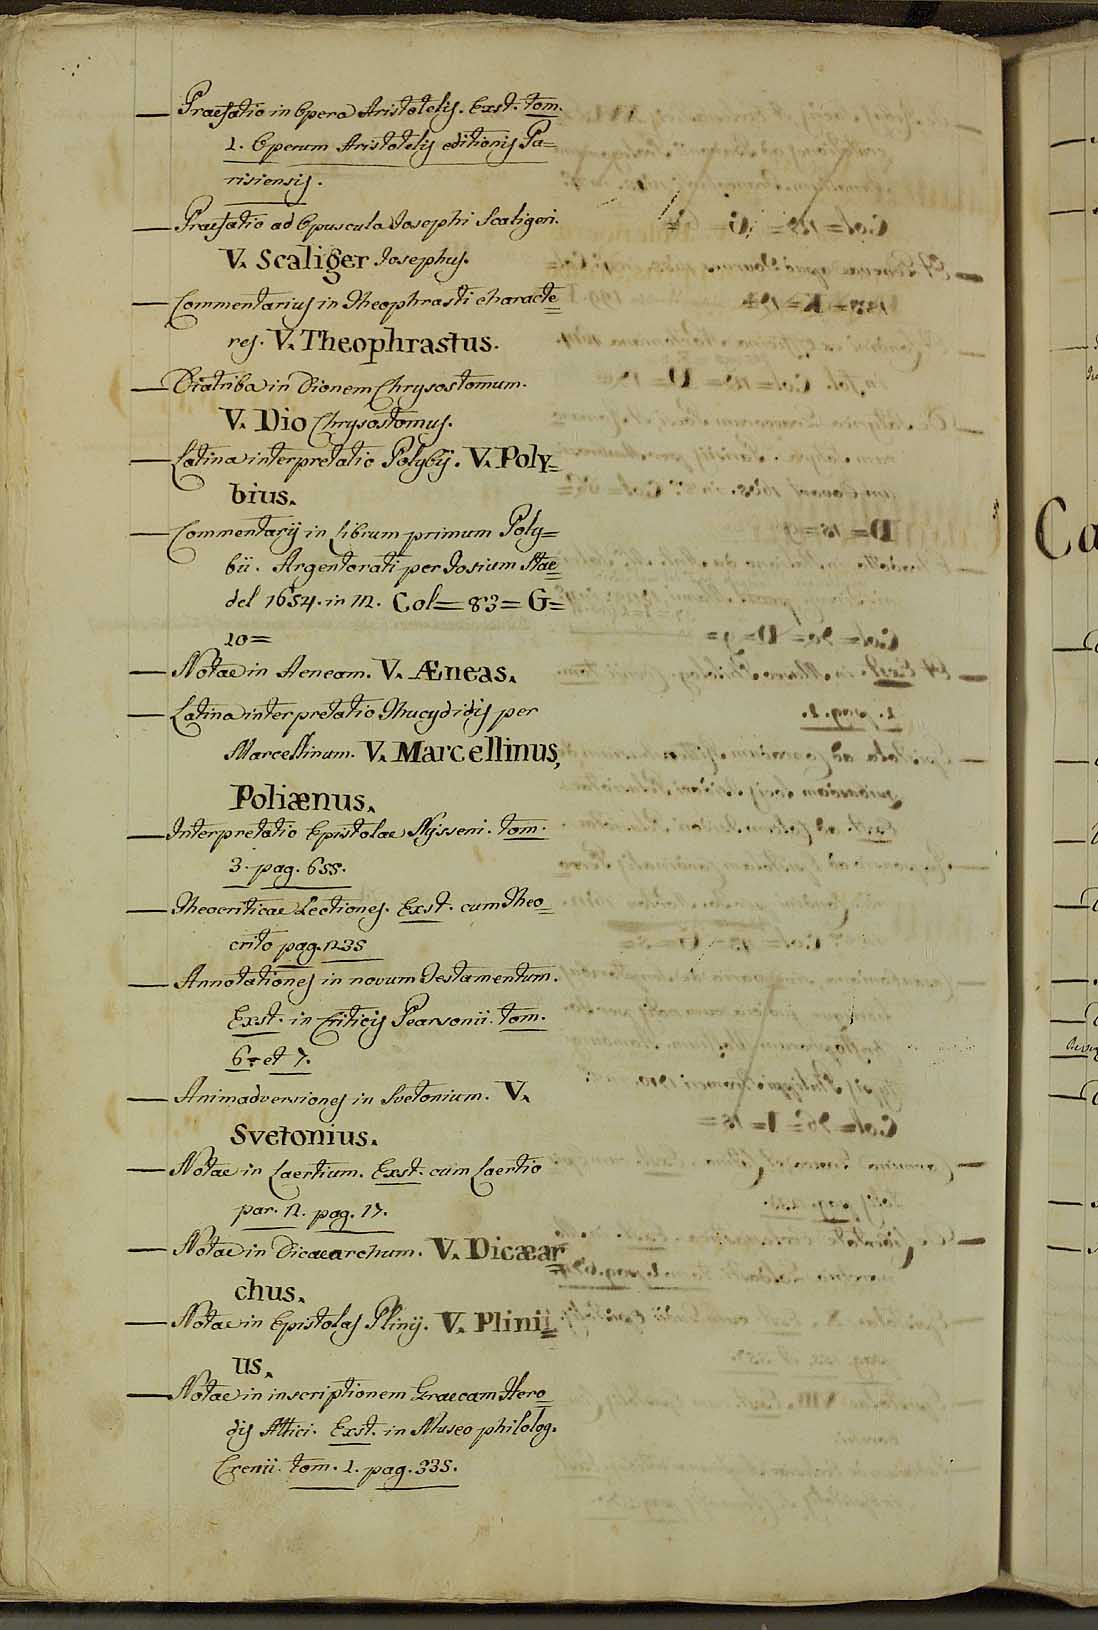 — Praefatio in Opera Aristotelis. Exst. tom.
1. Operum Aristotelis editionis Pa=
risiensis.
— Praefatio ad Opuscula Josephi Scaligeri.
V. Scaliger Josephus.
— Commentarius in Theophrasti characte=
res. V. Theophrastus.
— Diatriba in Dionem Chrysostomum.
V. Dio Chrysostomus.
— Latina interpretatio Polybij. V. Poly=
bius.
— Commentarij in Librum primum Poly=
bii. Argentorati per Josium Stae=
del 1654. in 12. Col=83=G=
10=
— Notae in Aeneam. V. Æneas.
— Latina interpretatio Thucydidis per
Marcellinum. V. Marcellinus,
Poliænus.
— Interpretatio Epistolae Nysseni. tom.
3. pag. 655.
— Theocriticae Lectiones. Exst. cum Theo=
crito pag. 1235
— Annotationes in novum Testamentum.
Exst. in Criticis Pearsonii. tom.
6. et 7.
— Animadversiones in Svetonium. V.
Svetonius.
— Notae in Laertium. Exst. cum Laertio
par. 12. pag. 17.
— Notae in Dicaearchum. V. Dicæar=
chus.
— Notae in Epistolas Plinij. V. Plinii=
us.
— Notae in inscriptionem Graecam Hero=
dis Attici. Exst. in Museo philolog.
Crenii. tom. 1. pag. 335.
Ca